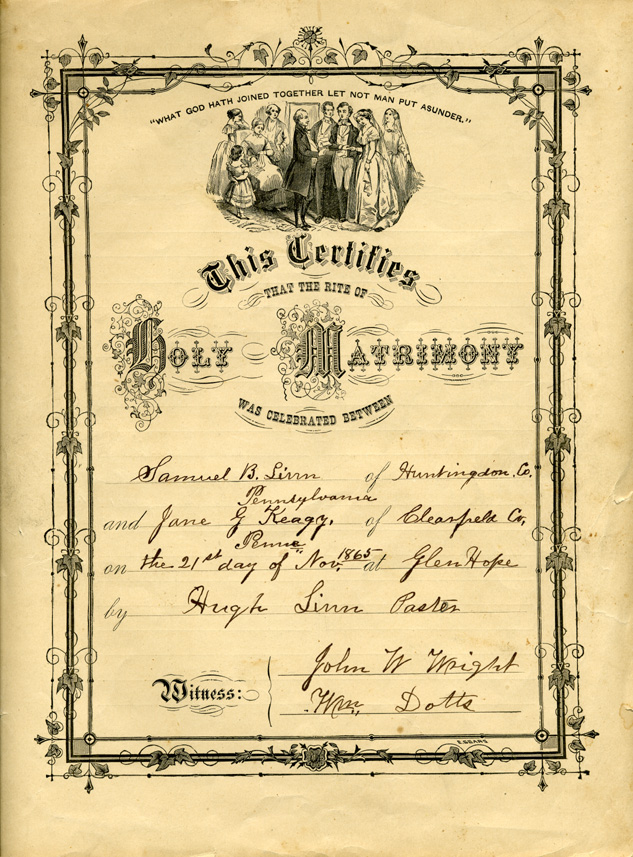 "WHAT GOD HATH JOINED TOGETHER LET NOT MAN PUT ASUNDER."
This Certifies
THAT THE RITE OF
HOLY MATRIMONY
WAS CELEBRATED BETWEEN
Samuel B. Linn of Huntingdon. Co.
Pennsylvania
and Jane G Keagy, of Clearfield Co,
Penna
on the 21st day of Nov. 1865 at Glen Hope
by Hugh Linn Pastor
Witness:
John W Wright
Wm, Dotts
E.SEARS